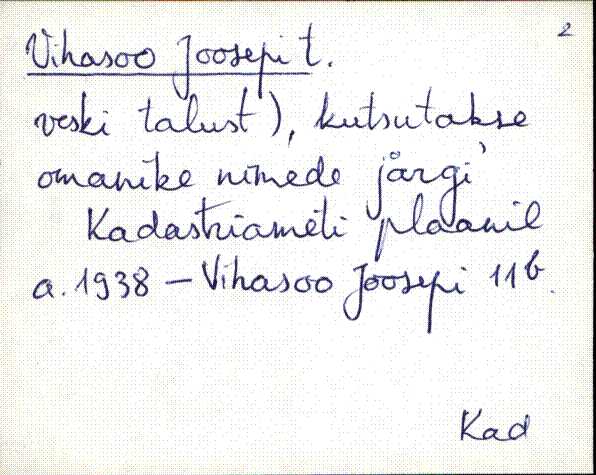 2
Vihasoo Joosepi t.
veski talust), kutsutakse
omanike nimede järgi'
Kadastriameti plaanil
a. 1938 – Vihasoo Joosepi 11b.
Kad